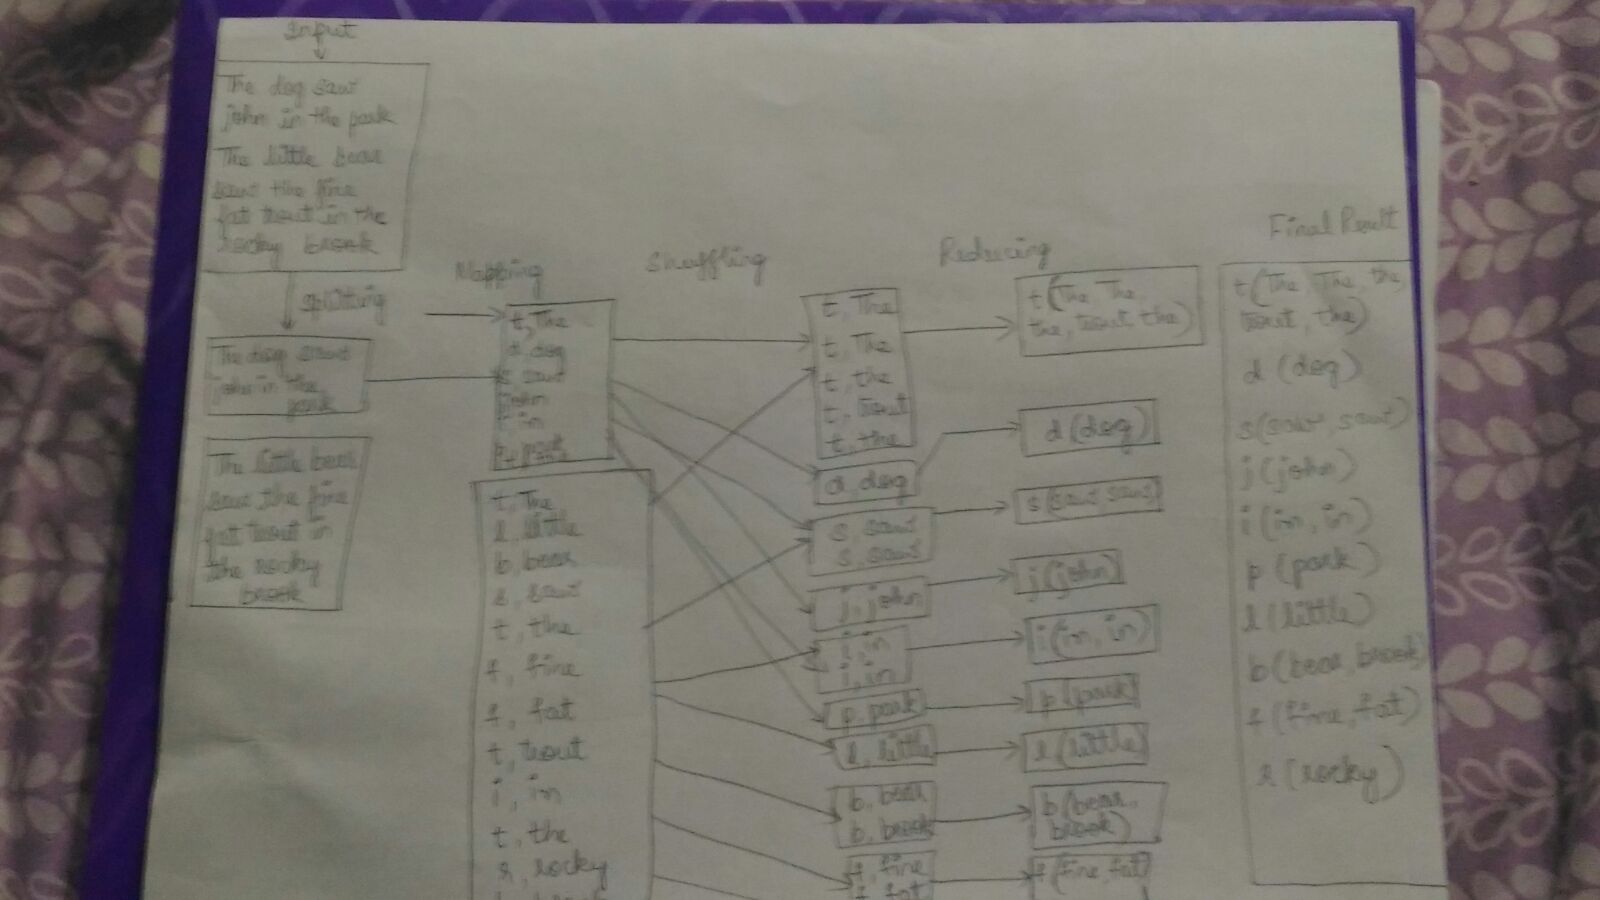 Input
The dog saw
john in the park
The little bear
saw the fine
fat trout in the
rocky brook
splitting
The dog saw
john in the
park
The little bear
saw the fine
fat trout in
the rocky
brook
Mapping
t, The
d, dog
s, saw
j, john
i, in
p, park
t, The
l, little
b, bear
s, saw
t, the
f, fine
f, fat
t, trout
i, in
t, the
r, rocky
Shuffling
t, The
t, The
t, the
t, trout
t, the
d, dog
s, saw
s, saw
j, john
i, in
i, in
p, park
l, little
b, bear
b, brook
f, fine
f, fat
Reducing
t (The, The,
the, trout, the)
d (dog)
s (saw, saw)
j (john)
i (in, in)
p (park)
l (little)
b (bear,
brook)
f (fine, fat)
Final Result
t (The, The, the
trout, the)
d (dog)
s (saw, saw)
j (john)
i (in, in)
p (park)
l (little)
b (bear, brook)
f (fine, fat)
r (rocky)